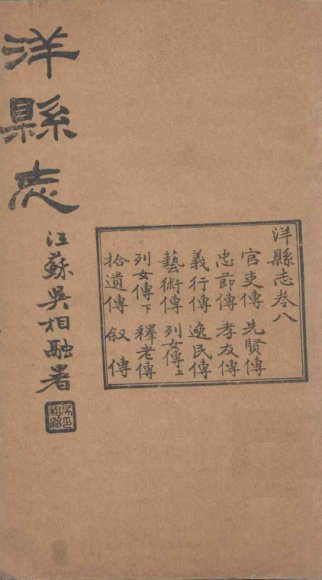 洋縣志
江蘇吳相融署
洋縣志卷八
官吏傳 先賢傳
忠節傳 孝友傳
義行傳 逸民傳
藝術傳 列女傳上
列女傳下 釋老傳
拾遺傳 叙傳